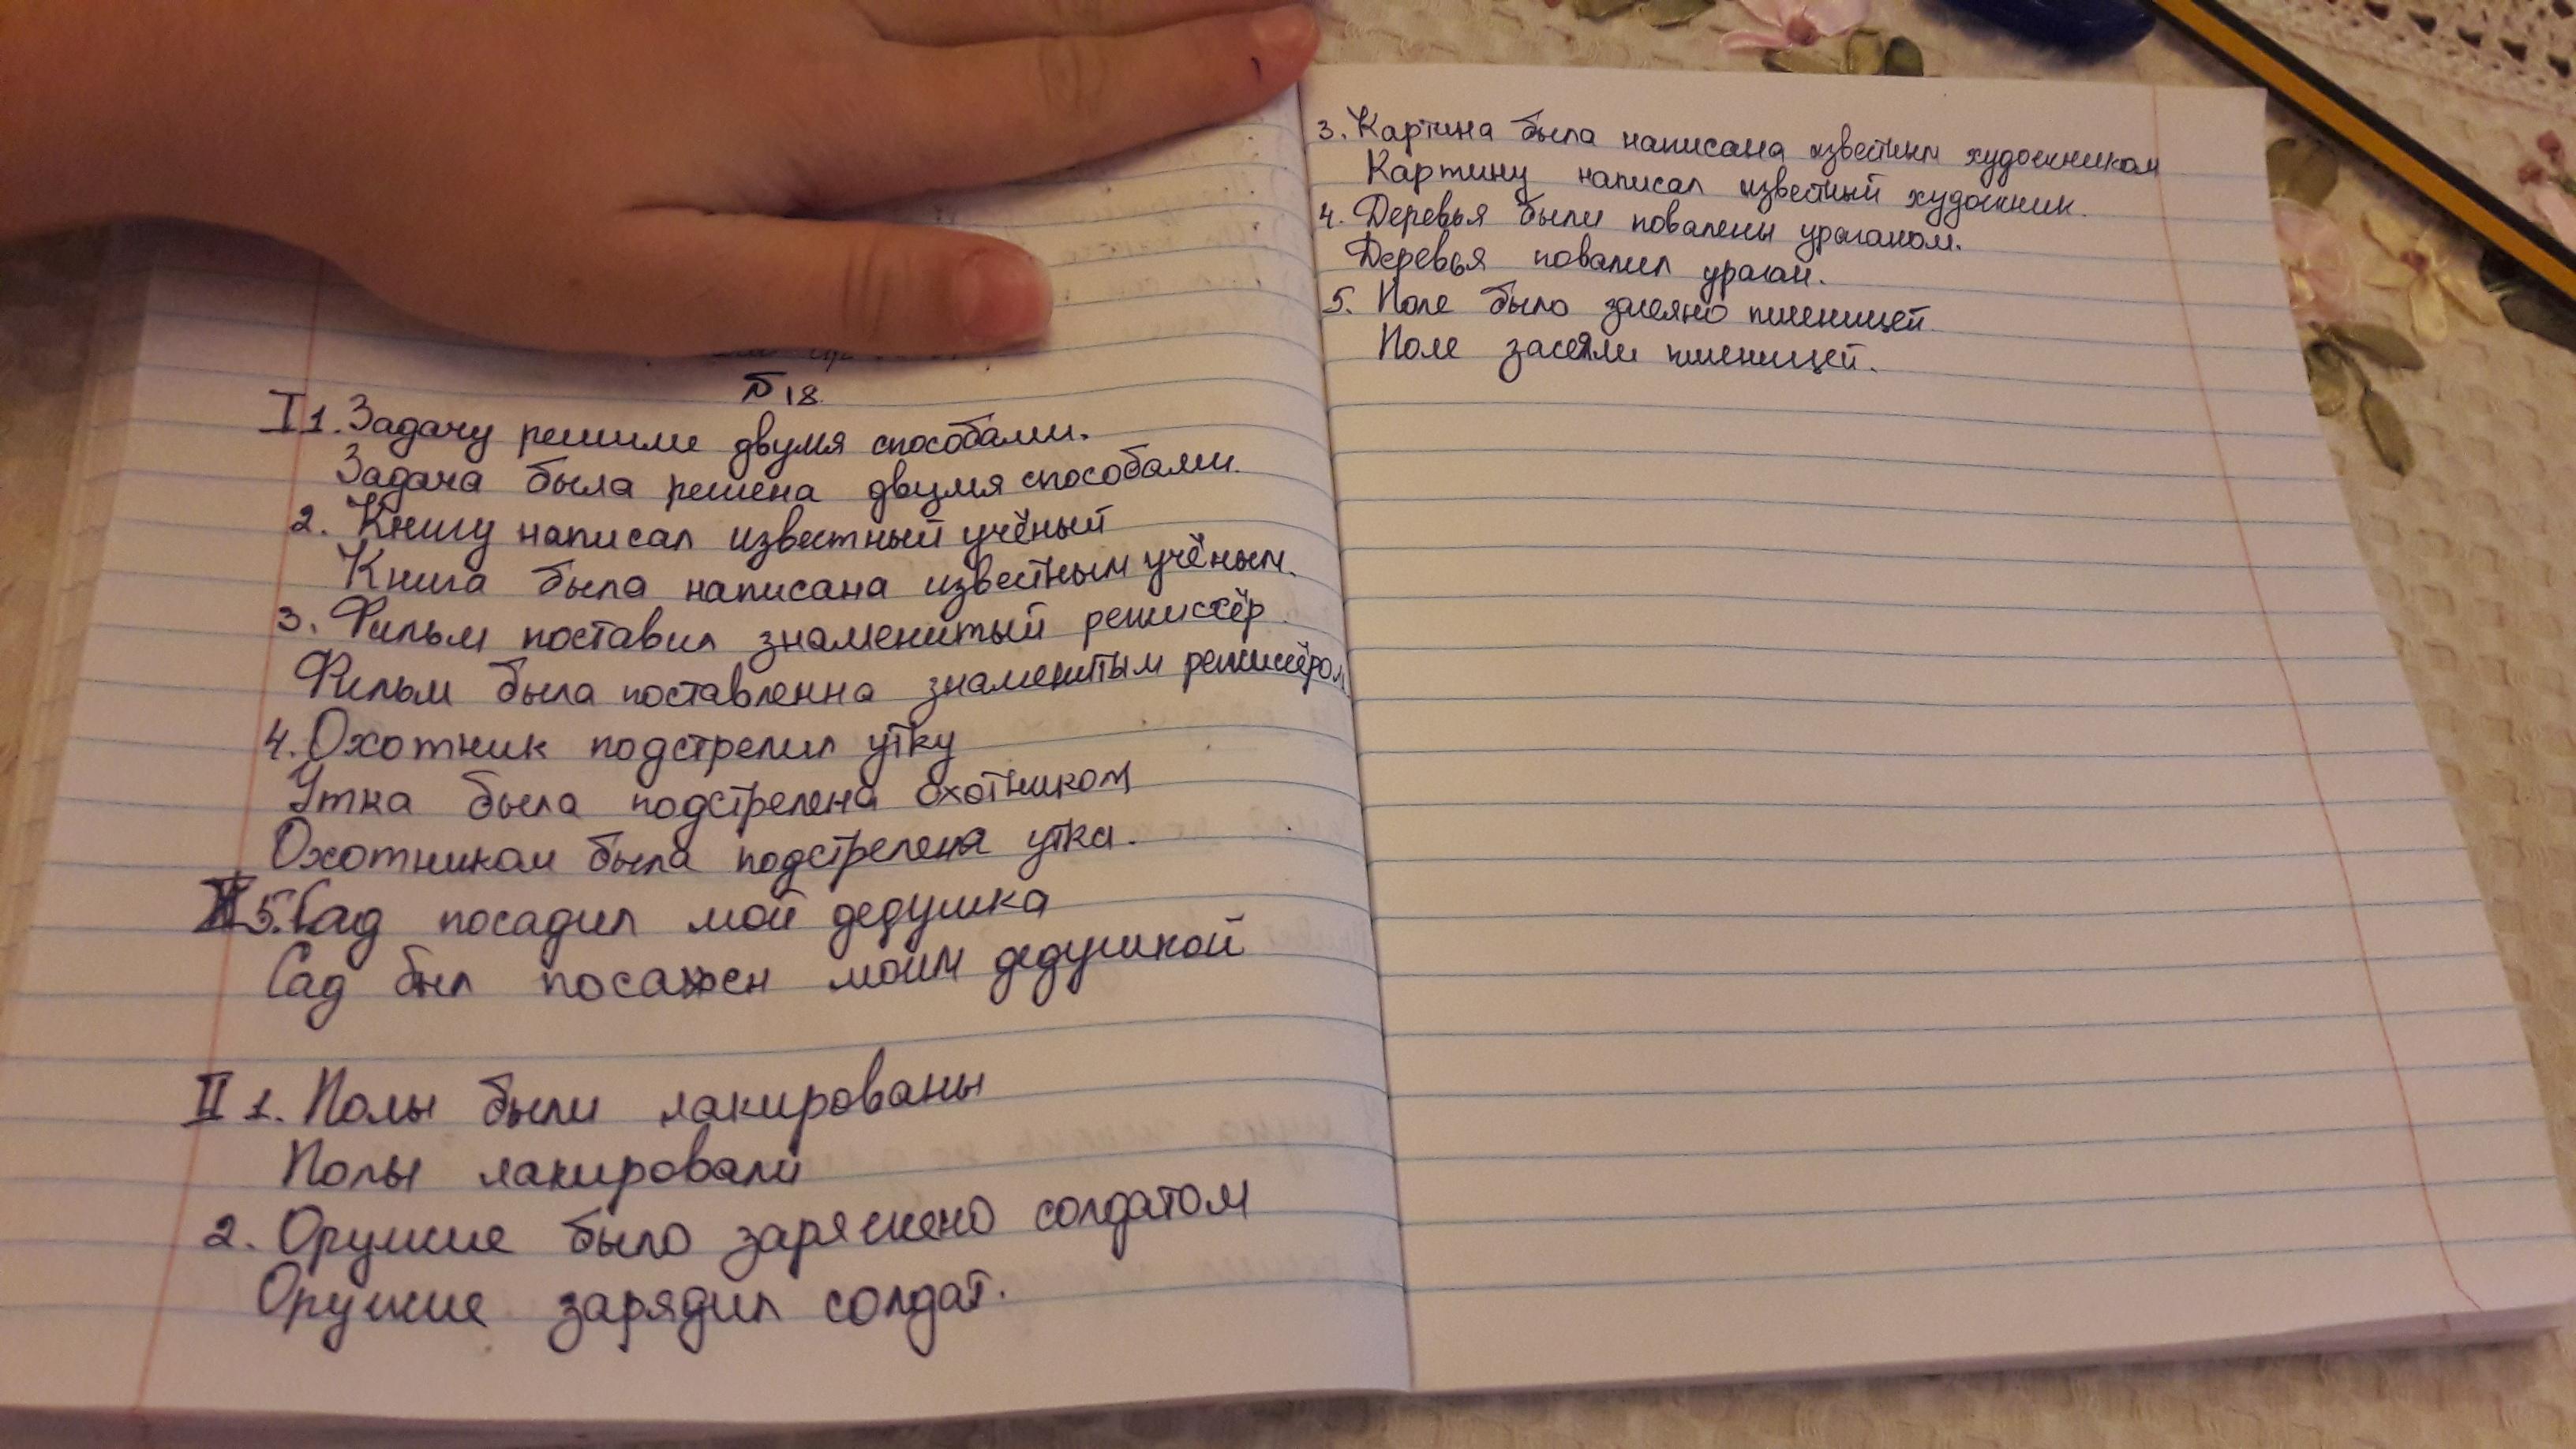 №18.
I 1. Задачу решили двумя способами.
Задача была решена двумя способами.
2. Книгу написал известный учёный
Книга была написана известным учёным.
3. Фильм поставил знаменитый режиссёр.
Фильм была поставленна знаменитым режиссёром.
4. Охотник подстрелил утку
Утка была подстрелена охотником
Охотником была подстрелена утка.
5. Сад посадил мой дедушка
Сад был посажен моим дедушкой
II 1. Полы были лакированы
Полы лакировали
2. Оружие было заряжено солдатом
Оружие зарядил солдат.
3. Картина была написана известным художником
Картину написал известный художник.
4. Деревья были повалены ураганом.
Деревья повалил ураган.
5. Поле было засеяно пшеницей
Поле засеяли пшеницей.